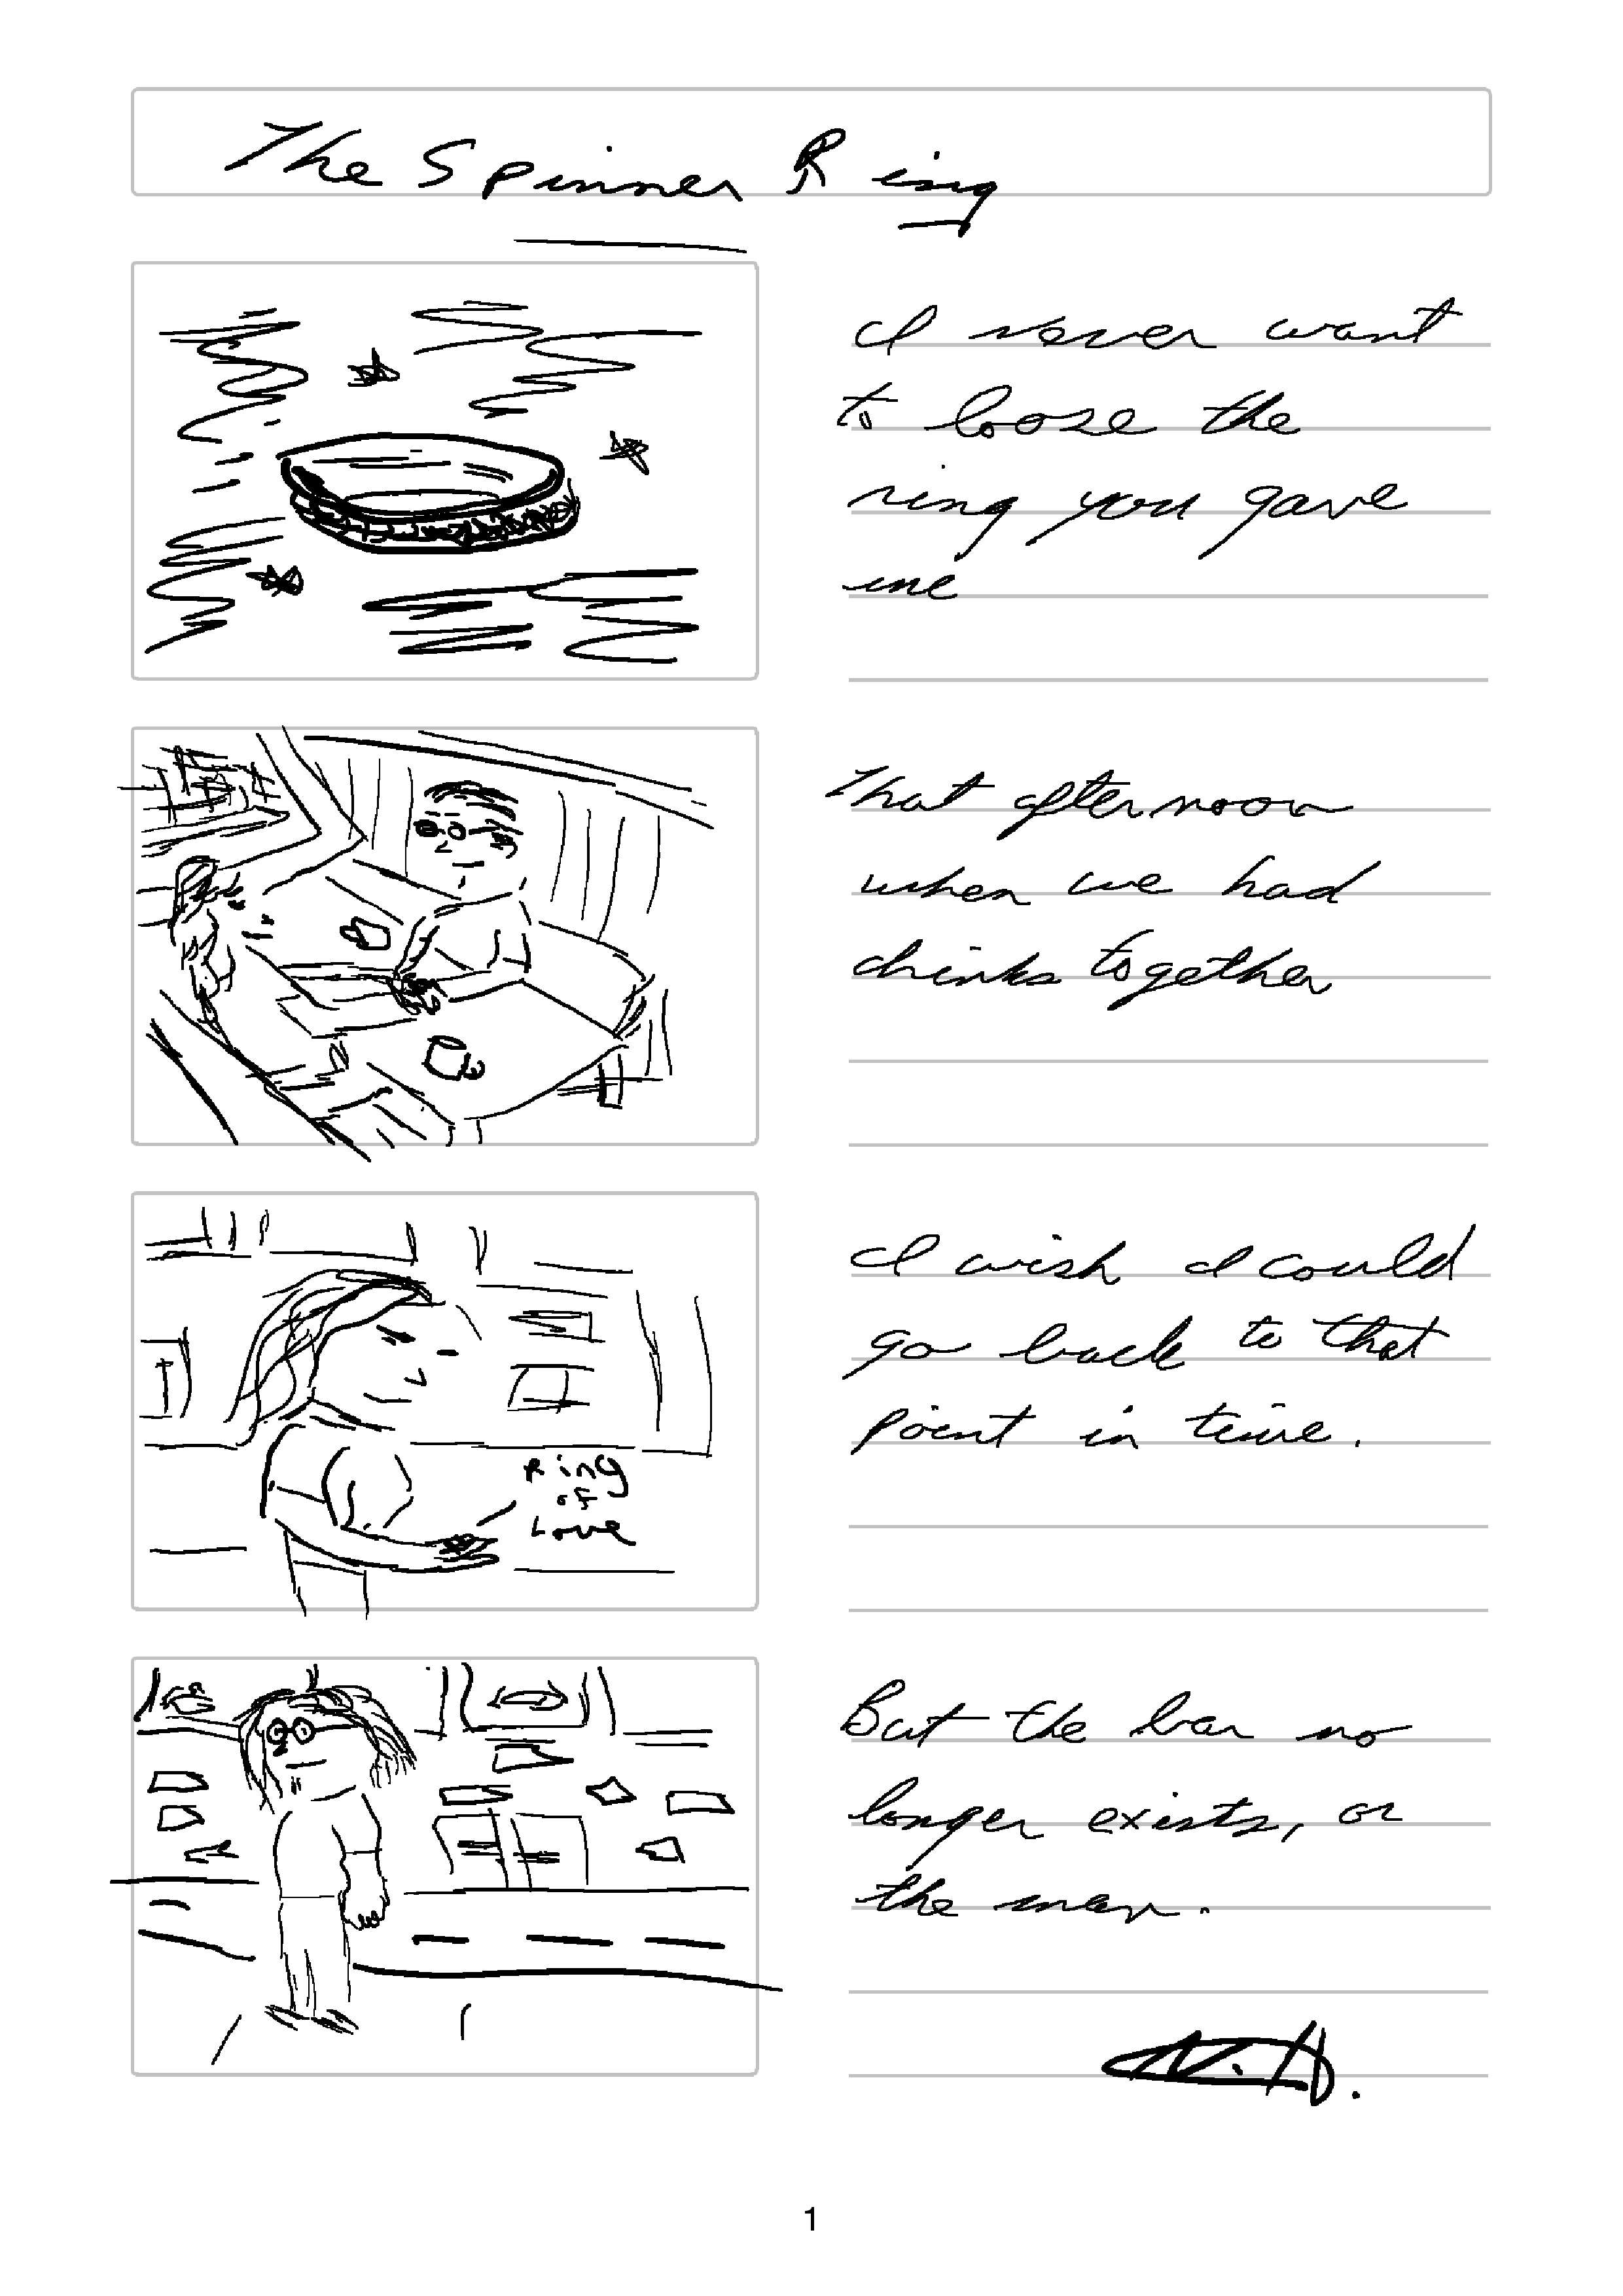 The Spinner Ring
I never want
to loose the
ring you gave
me
That afternoon
when we had
drinks together
I wish I could
go back to that
point in time.
Ring
of
Love
But the bar no
longer exists, or
the man.
N.H.
1